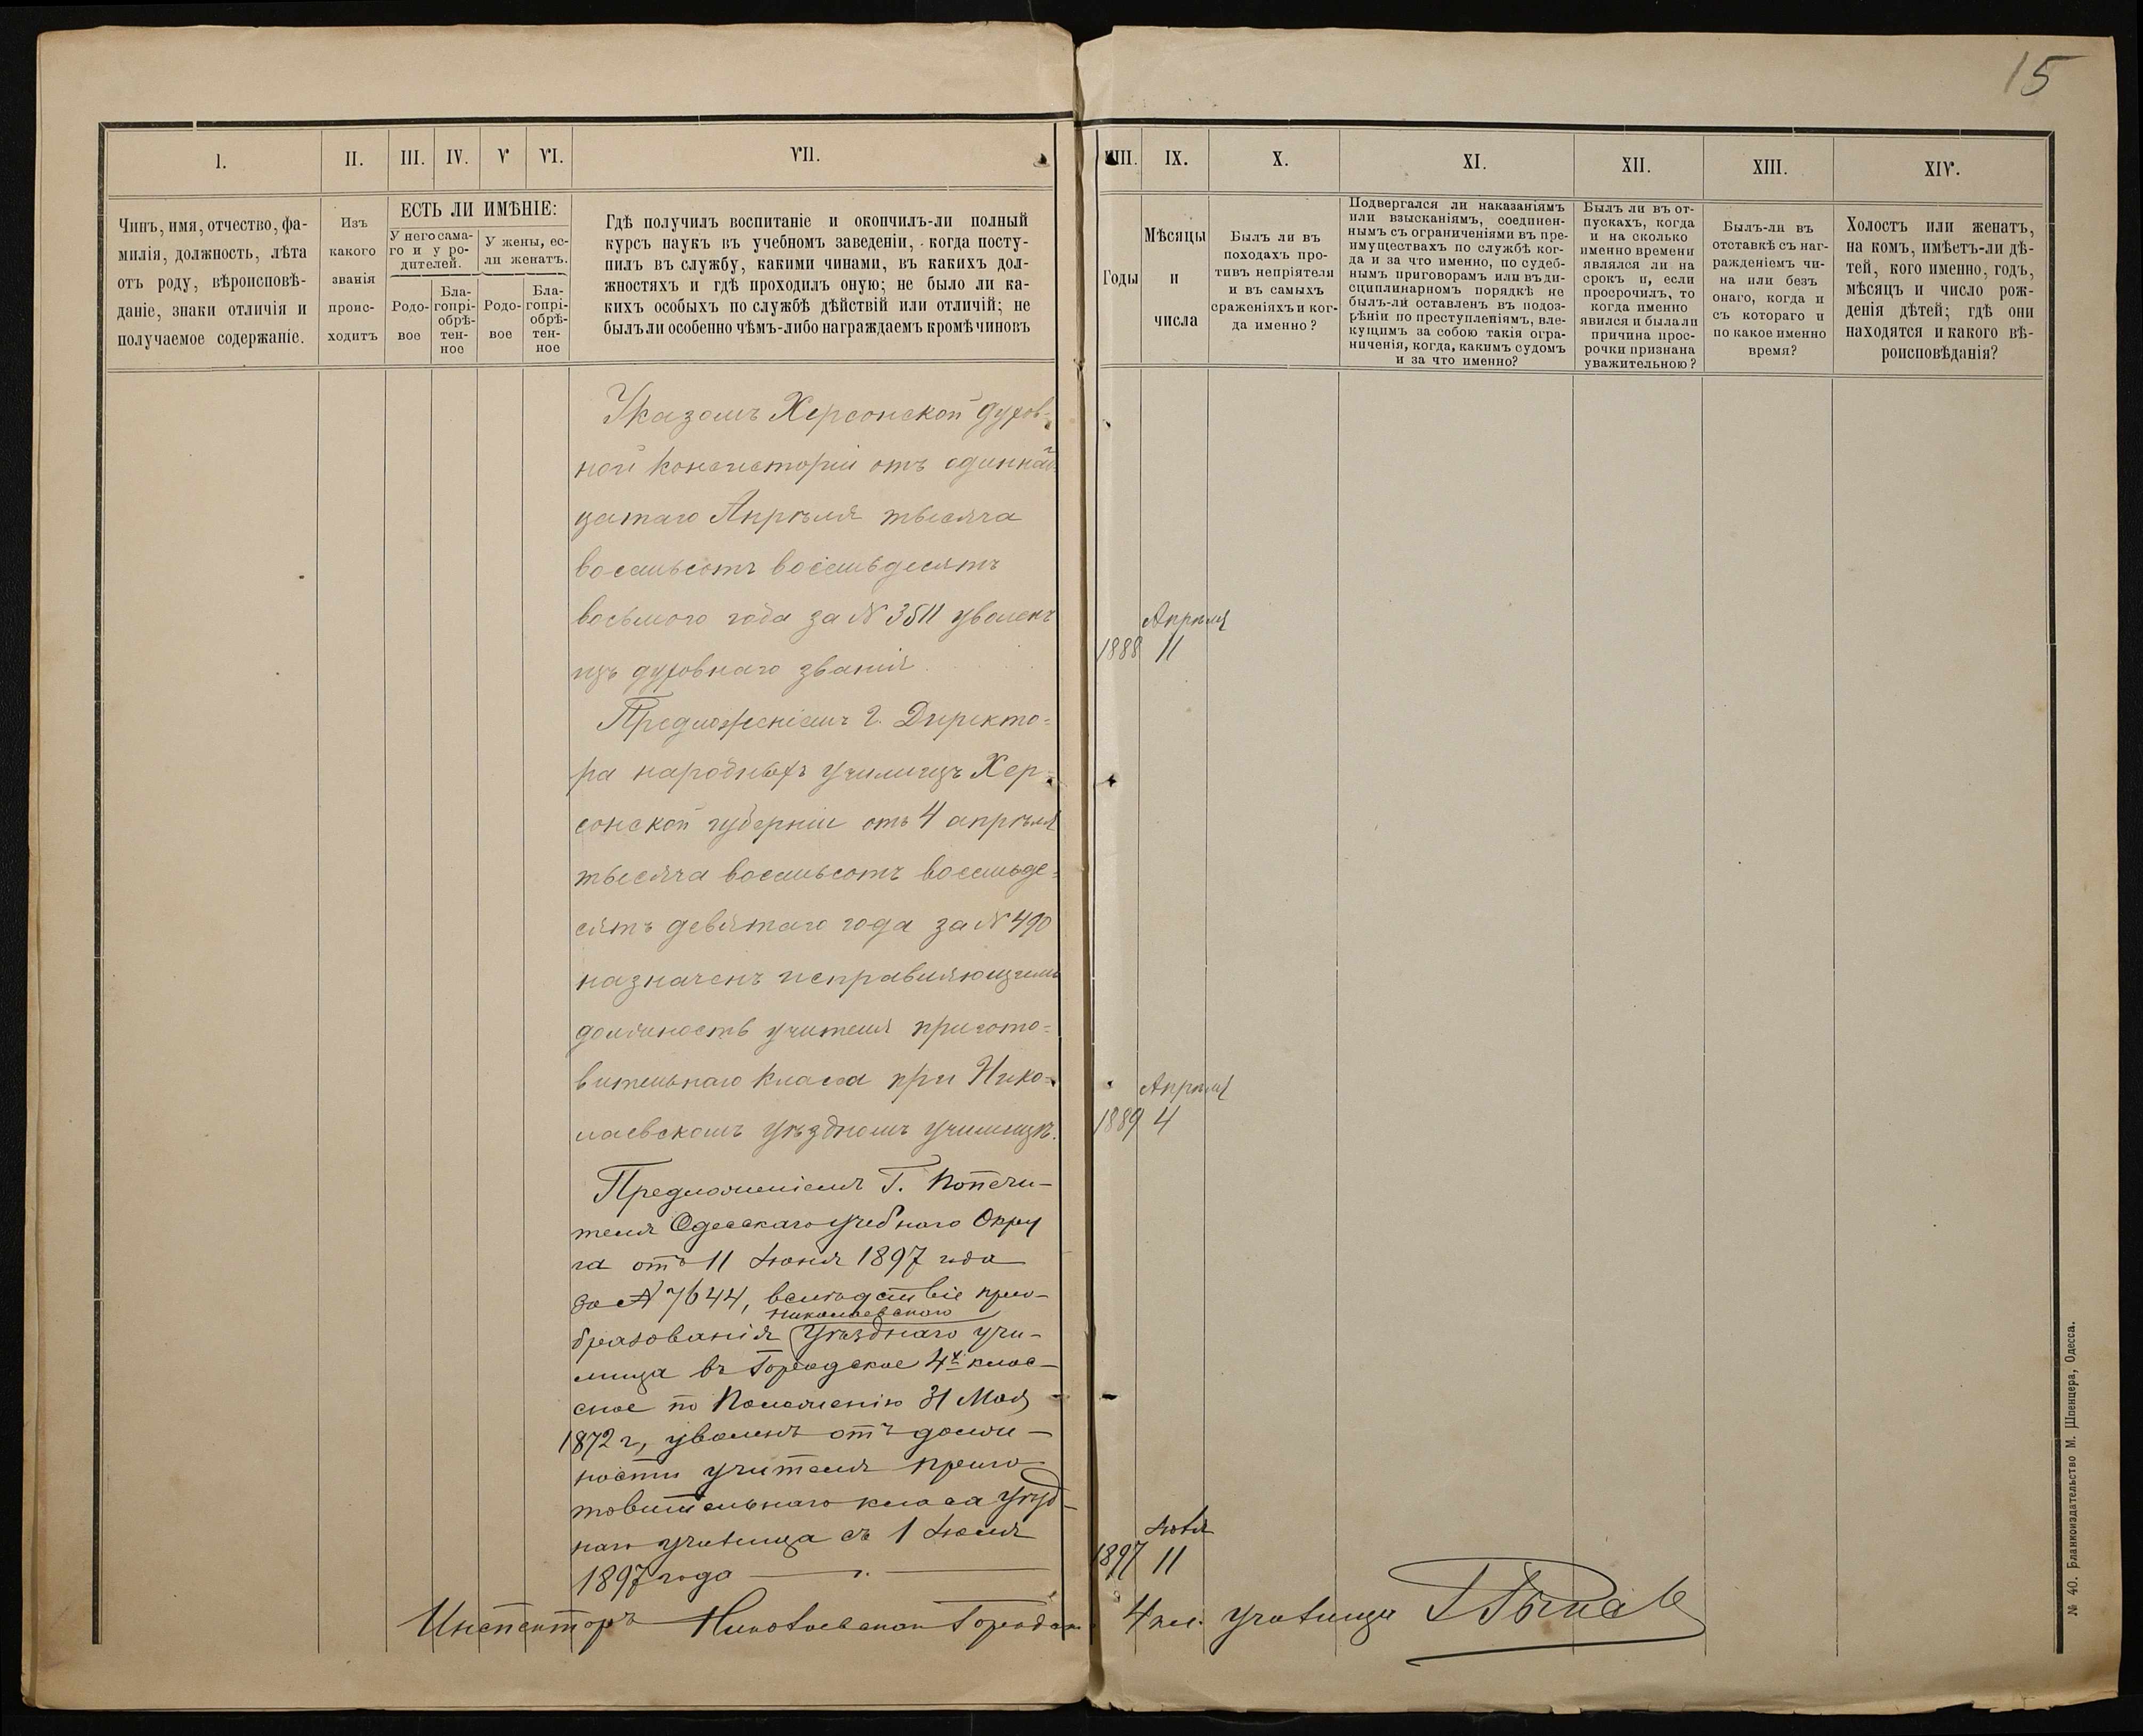 15
I.
II.
III.
IV.
V
VI.
VII.
VIII.
IX.
X.
XI.
XII.
XIII.
XIV.
Чинъ, имя, отчество, фа-
милія, должность, лѣта
отъ роду, вѣроисповѣ-
даніе, знаки отличія и
получаемое содержаніе.
Изъ
какого
званія
проис-
ходитъ
ЕСТЬ ЛИ ИМѢНІЕ:
У него сама-
го и у ро-
дителей.
У жены, ес-
ли женатъ.
Родо-
вое
Бла-
гопрі-
обрѣ-
тен-
ное
Родо-
вое
Бла-
гопрі-
обрѣ-
тен-
ное
Гдѣ получилъ воспитаніе и окончилъ-ли полный
курсъ наукъ въ учебномъ заведеніи, когда посту-
пилъ въ службу, какими чинами, въ какихъ дол-
жностяхъ и гдѣ проходилъ оную; не было ли ка-
кихъ особыхъ по службѣ дѣйствій или отличій; не
былъ ли особенно чѣмъ-либо награждаемъ кромѣ чиновъ
Годы
Мѣсяцы
и
числа
Былъ ли въ
походахъ про-
тивъ непріятеля
и въ самыхъ
сраженіяхъ и ког-
да именно?
Подвергался ли наказаніямъ
или взысканіямъ, соединен-
нымъ съ ограниченіями въ пре-
имуществахъ по службѣ ког-
да и за что именно, по судеб-
нымъ приговорамъ или въ ди-
сциплинарномъ порядкѣ не
былъ-ли оставленъ въ подоз-
рѣніи по преступленіямъ, вле-
кущимъ за собою такія огра-
ниченія, когда, какимъ судомъ
и за что именно?
Былъ ли въ от-
пускахъ, когда
и на сколько
именно времени
являлся ли на
срокъ и, если
просрочилъ, то
когда именно
явился и была ли
причина прос-
рочки признана
уважительною?
Былъ-ли въ
отставкѣ съ наг-
ражденіемъ чи-
на или безъ
онаго, когда и
съ котораго и
по какое именно
время?
Холостъ или женатъ,
на комъ, имѣетъ-ли дѣ-
тей, кого именно, годъ,
мѣсяцъ и число рож-
денія дѣтей; гдѣ они
находятся и какого вѣ-
роисповѣданія?
Указомъ Херсонской духов-
ной консисторіи отъ одиннад-
цатаго Апрѣля тысяча
восемьсотъ восемьдесятъ
восьмого года за № 3511 уволенъ
изъ духовнаго званія.
Апрѣля
1888 11
Предложеніемъ Г. Директо=
ра народныхъ училищъ Хер=
сонской губерніи отъ 4 апрѣля
тысяча восемьсотъ восемьде=
сятъ девятаго года за № 490
назначенъ исправляющимъ
должность учителя пригото=
вительнаго класса при Нико=
лаевскомъ уѣздномъ училищѣ.
Апрѣля
1889 4
Предложеніемъ Г. Попечи-
теля Одесскаго Учебнаго Окру
га отъ 11 Іюня 1897 года
за № 7644, вслѣдствіе прео-
Николаевскаго
бразованія Уѣзднаго учи-
лища въ Городское 4х клас-
сное по Положенію 31 Мая
1872 г, уволенъ отъ долж-
ности учителя приго-
товительнаго класса Уѣзд-
наго училища съ 1 Іюля
1897 года
Іюня
1897 11
Инспекторъ Николаевскаго Городск. 4 кл. училища
№ 40. Бланкоиздательство М. Шпенцера, Одесса.